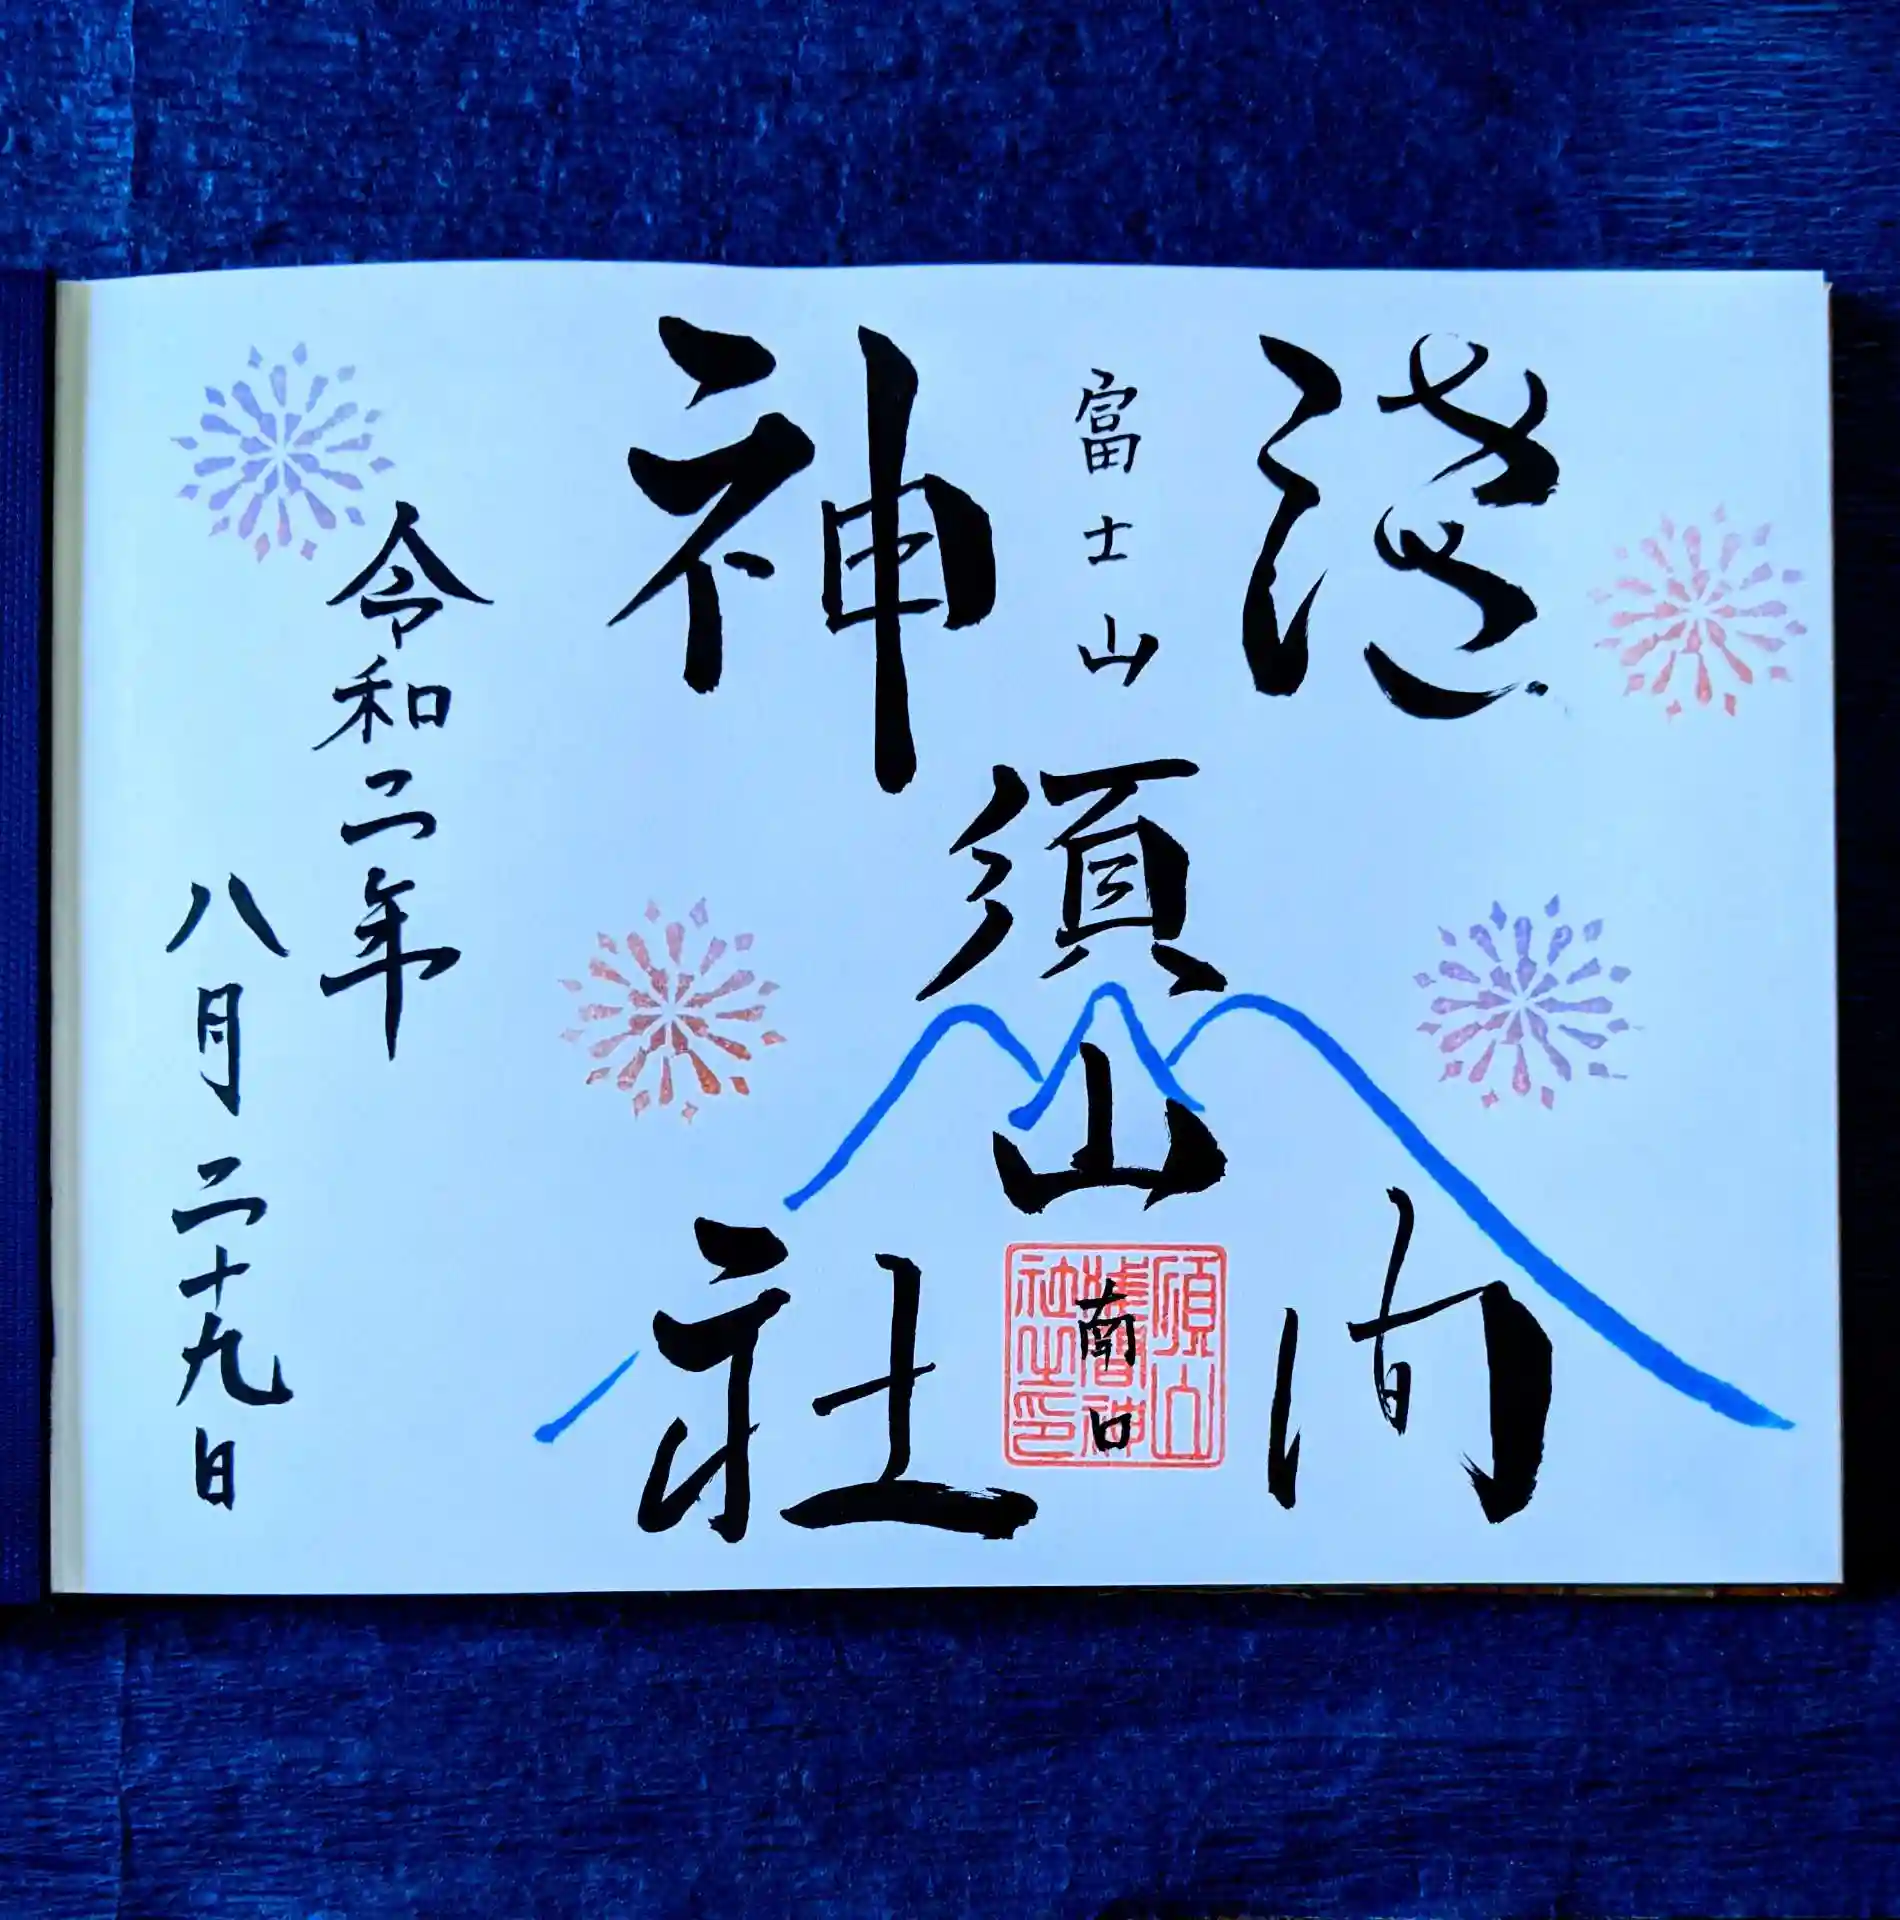 浅間
富士山
須山
南口
須山
浅間神
社之印
神社
令和二年
八月二十九日